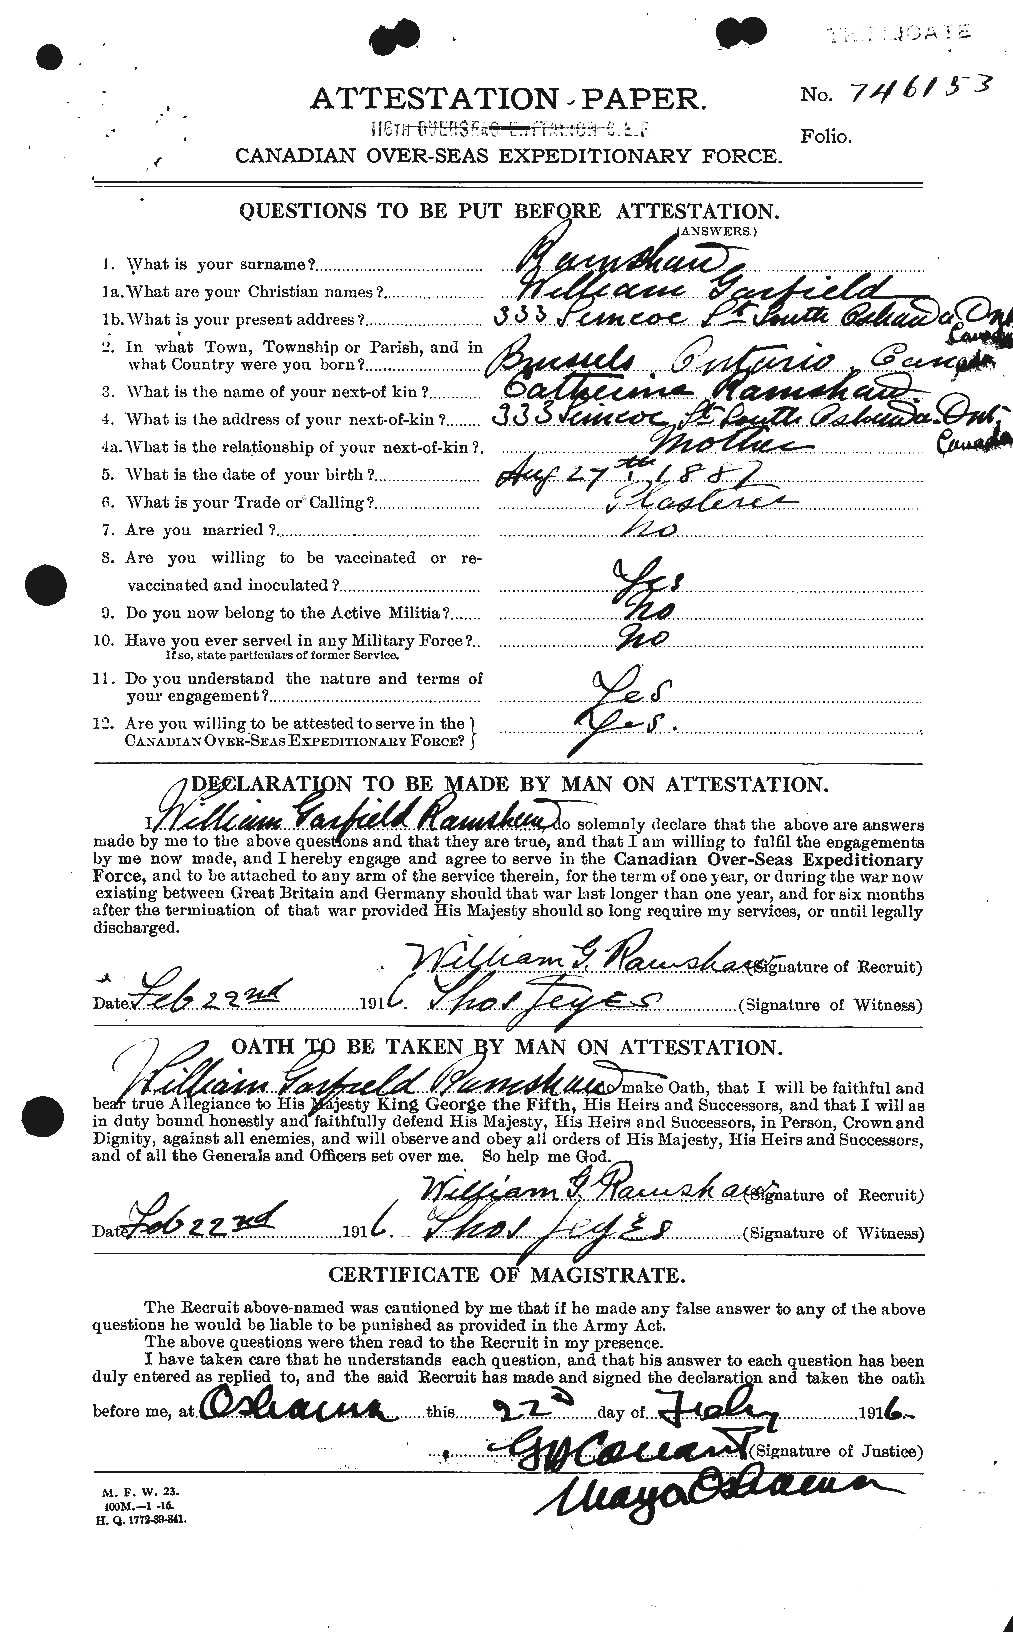 TRIPLICATE
ATTESTATION PAPER.
No. 746153
116TH OVERSEAS BATTALION C.E.F.
Folio.
CANADIAN OVER-SEAS EXPEDITIONARY FORCE.
QUESTIONS TO BE PUT BEFORE ATTESTATION.
(ANSWERS.)
1. What is your surname? Ramshaw
1a. What are your Christian names? William Garfield
1b. What is your present address? 333 Simcoe St South Oshawa. Ont Canada
2. In what Town, Township or Parish, and in
what Country were you born? Brussels. Ontario. Canada
3. What is the name of your next-of kin? Catherine Ramshaw.
4. What is the address of your next-of-kin? 333 Simcoe St South Oshawa. Ont. Canada
4a. What is the relationship of your next-of-kin? Mother
5. What is the date of your birth? Aug 27th, 1887
6. What is your Trade or Calling? Plasterer
7. Are you married? No
8. Are you willing to be vaccinated or re-
vaccinated and inoculated? Yes
9. Do you now belong to the Active Militia? No
10. Have you ever served in any Military Force? No
If so, state particulars of former Service.
11. Do you understand the nature and terms of
your engagement? Yes
12. Are you willing to be attested to serve in the
CANADIAN OVER-SEAS EXPEDITIONARY FORCE? } Yes.
DECLARATION TO BE MADE BY MAN ON ATTESTATION.
I, William Garfield Ramshaw, do solemnly declare that the above are answers
made by me to the above questions and that they are true, and that I am willing to fulfil the engagements
by me now made, and I hereby engage and agree to serve in the Canadian Over-Seas Expeditionary
Force, and to be attached to any arm of the service therein, for the term of one year, or during the war now
existing between Great Britain and Germany should that war last longer than one year, and for six months
after the termination of that war provided His Majesty should so long require my services, or until legally
discharged.
William G. Ramshaw (Signature of Recruit)
Date Feb 22nd 1916. Thos Jeyes (Signature of Witness)
OATH TO BE TAKEN BY MAN ON ATTESTATION.
I, William Garfield Ramshaw, do make Oath, that I will be faithful and
bear true Allegiance to His Majesty King George the Fifth, His Heirs and Successors, and that I will as
in duty bound honestly and faithfully defend His Majesty, His Heirs and Successors, in Person, Crown and
Dignity, against all enemies, and will observe and obey all orders of His Majesty, His Heirs and Successors,
and of all the Generals and Officers set over me. So help me God.
William G. Ramshaw (Signature of Recruit)
Date Feb 22nd 1916. Thos Jeyes (Signature of Witness)
CERTIFICATE OF MAGISTRATE.
The Recruit above-named was cautioned by me that if he made any false answer to any of the above
questions he would be liable to be punished as provided in the Army Act.
The above questions were then read to the Recruit in my presence.
I have taken care that he understands each question, and that his answer to each question has been
duly entered as replied to, and the said Recruit has made and signed the declaration and taken the oath
before me, at Oshawa this 22nd day of Feby 1916
G D Conant (Signature of Justice)
Mayor Oshawa
M. F. W. 23.
400M.—1-16.
H. Q. 1772-39-841.